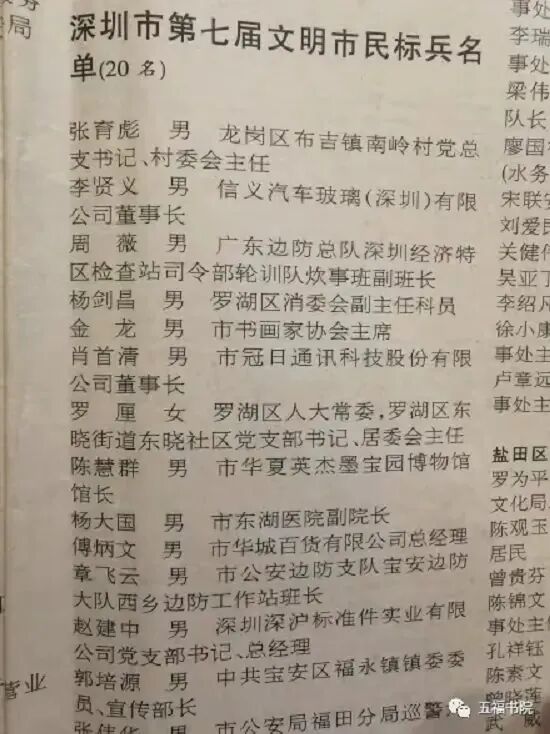 局
深圳市第七届文明市民标兵名
单(20 名)
张育彪 男 龙岗区布吉镇南岭村党总
支书记、村委会主任
李贤义 男 信义汽车玻璃(深圳)有限
公司董事长
周 薇 男 广东边防总队深圳经济特
区检查站司令部轮训队炊事班副班长
杨剑昌 男 罗湖区消委会副主任科员
金 龙 男 市书画家协会主席
肖首清 男 市冠日通讯科技股份有限
公司董事长
罗 厘 女 罗湖区人大常委,罗湖区东
晓街道东晓社区党支部书记、居委会主任
陈慧群 男 市华夏英杰墨宝园博物馆
馆长
杨大国 男 市东湖医院副院长
傅炳文 男 市华城百货有限公司总经理
章飞云 男 市公安边防支队宝安边防
大队西乡边防工作站班长
赵建中 男 深圳深沪标准件实业有限
公司党支部书记、总经理
郭培源 男 中共宝安区福永镇镇委委
员、宣传部长
张伟华 男 市公安局福田分局巡警
营业
事处
李瑞
事处主
梁伟
队长
廖国
(水务
宋联安
刘爱民
关健伟
吴亚丁
李绍凡
徐小康
事处主
卢章远
事处主
盐田区
罗为平
文化局
陈观玉
居民
曾贵芬
陈锦文
事处主
孔祥钰
陈素文
曾晓莲
武 威
五福书院